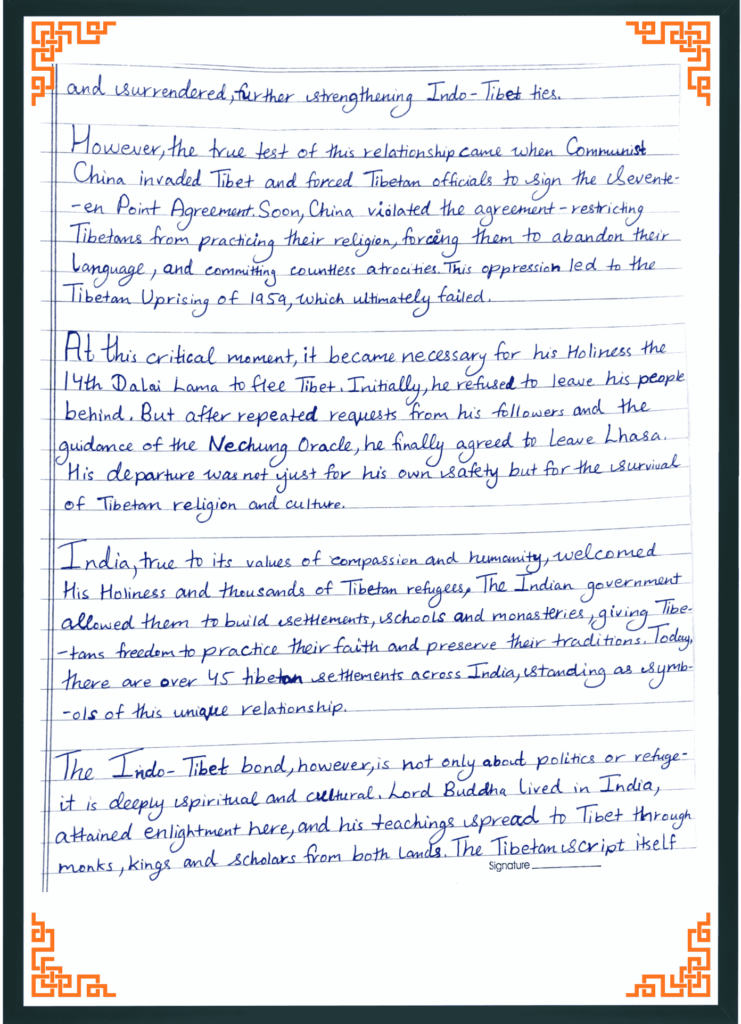 and surrendered, further strengthening Indo-Tibet ties.
However, the true test of this relationship came when Communist
China invaded Tibet and forced Tibetan officials to sign the Sevente-
-en Point Agreement. Soon, China violated the agreement - restricting
Tibetans from practicing their religion, forcing them to abandon their
language, and committing countless atrocities. This oppression led to the
Tibetan Uprising of 1959, which ultimately failed.
At this critical moment, it became necessary for his Holiness the
14th Dalai Lama to flee Tibet. Initially, he refused to leave his people
behind. But after repeated requests from his followers and the
guidance of the Nechung Oracle, he finally agreed to leave Lhasa.
His departure was not just for his own safety but for the survival
of Tibetan religion and culture.
India, true to its values of compassion and humanity, welcomed
His Holiness and thousands of Tibetan refugees. The Indian government
allowed them to build settlements, schools and monasteries, giving Tibe-
-tans freedom to practice their faith and preserve their traditions. Today,
there are over 45 tibetan settlements across India, standing as symb-
-ols of this unique relationship.
The Indo-Tibet bond, however, is not only about politics or refuge-
it is deeply spiritual and cultural. Lord Buddha lived in India,
attained enlightment here, and his teachings spread to Tibet through
monks, kings and scholars from both lands. The Tibetan script itself
Signature